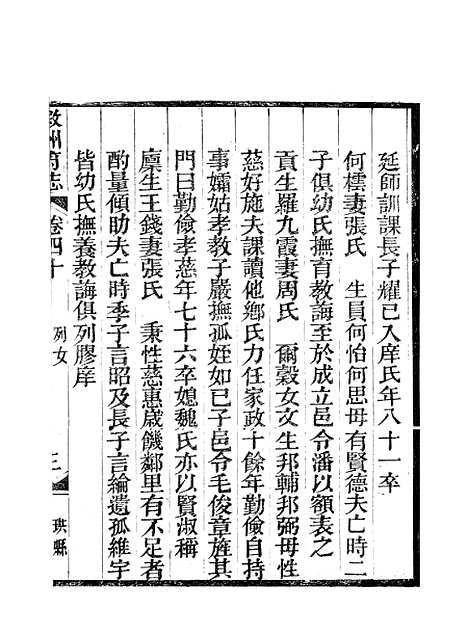 延師訓課長子耀已入庠氏年八十一卒
何樰妻張氏 生員何怡何思母有賢德夫亡時二
子俱幼氏撫育教誨至於成立邑令潘以額表之
貢生羅九霞妻周氏 爾穀女文生邦輔邦弼母性
慈好施夫課讀他鄉氏力任家政十餘年勤儉自持
事孀姑孝教子嚴撫孤姪如已子邑令毛俊章旌其
門曰勤儉孝慈年七十六卒媳魏氏亦以賢淑稱
廩生王錢妻張氏 秉性慈惠歲饑鄰里有不足者
酌量傾助夫亡時季子言昭及長子言綸遺孤維宇
皆幼氏撫養教誨俱列膠庠
敘州府志 卷四十 列女 三 珙縣